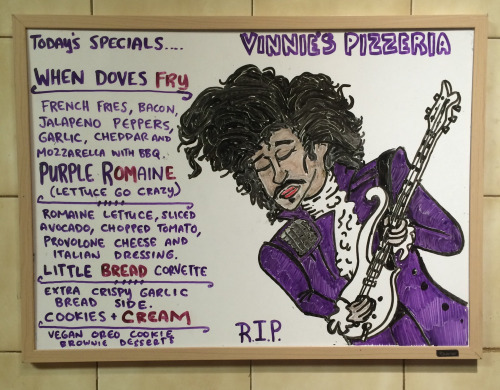 Today's Specials....
VINNIE'S PIZZERIA
WHEN DOVES FRY
FRENCH FRIES, BACON,
JALAPENO PEPPERS,
GARLIC, CHEDDAR AND
MOZZARELLA WITH BBQ.
PURPLE ROMAINE
(LETTUCE GO CRAZY)
ROMAINE LETTUCE, SLICED
AVOCADO, CHOPPED TOMATO,
PROVOLONE CHEESE AND
ITALIAN DRESSING.
LITTLE BREAD CORVETTE
EXTRA CRISPY GARLIC
BREAD SIDE.
COOKIES + CREAM
VEGAN OREO COOKIE
BROWNIE DESSERTS
R.I.P.